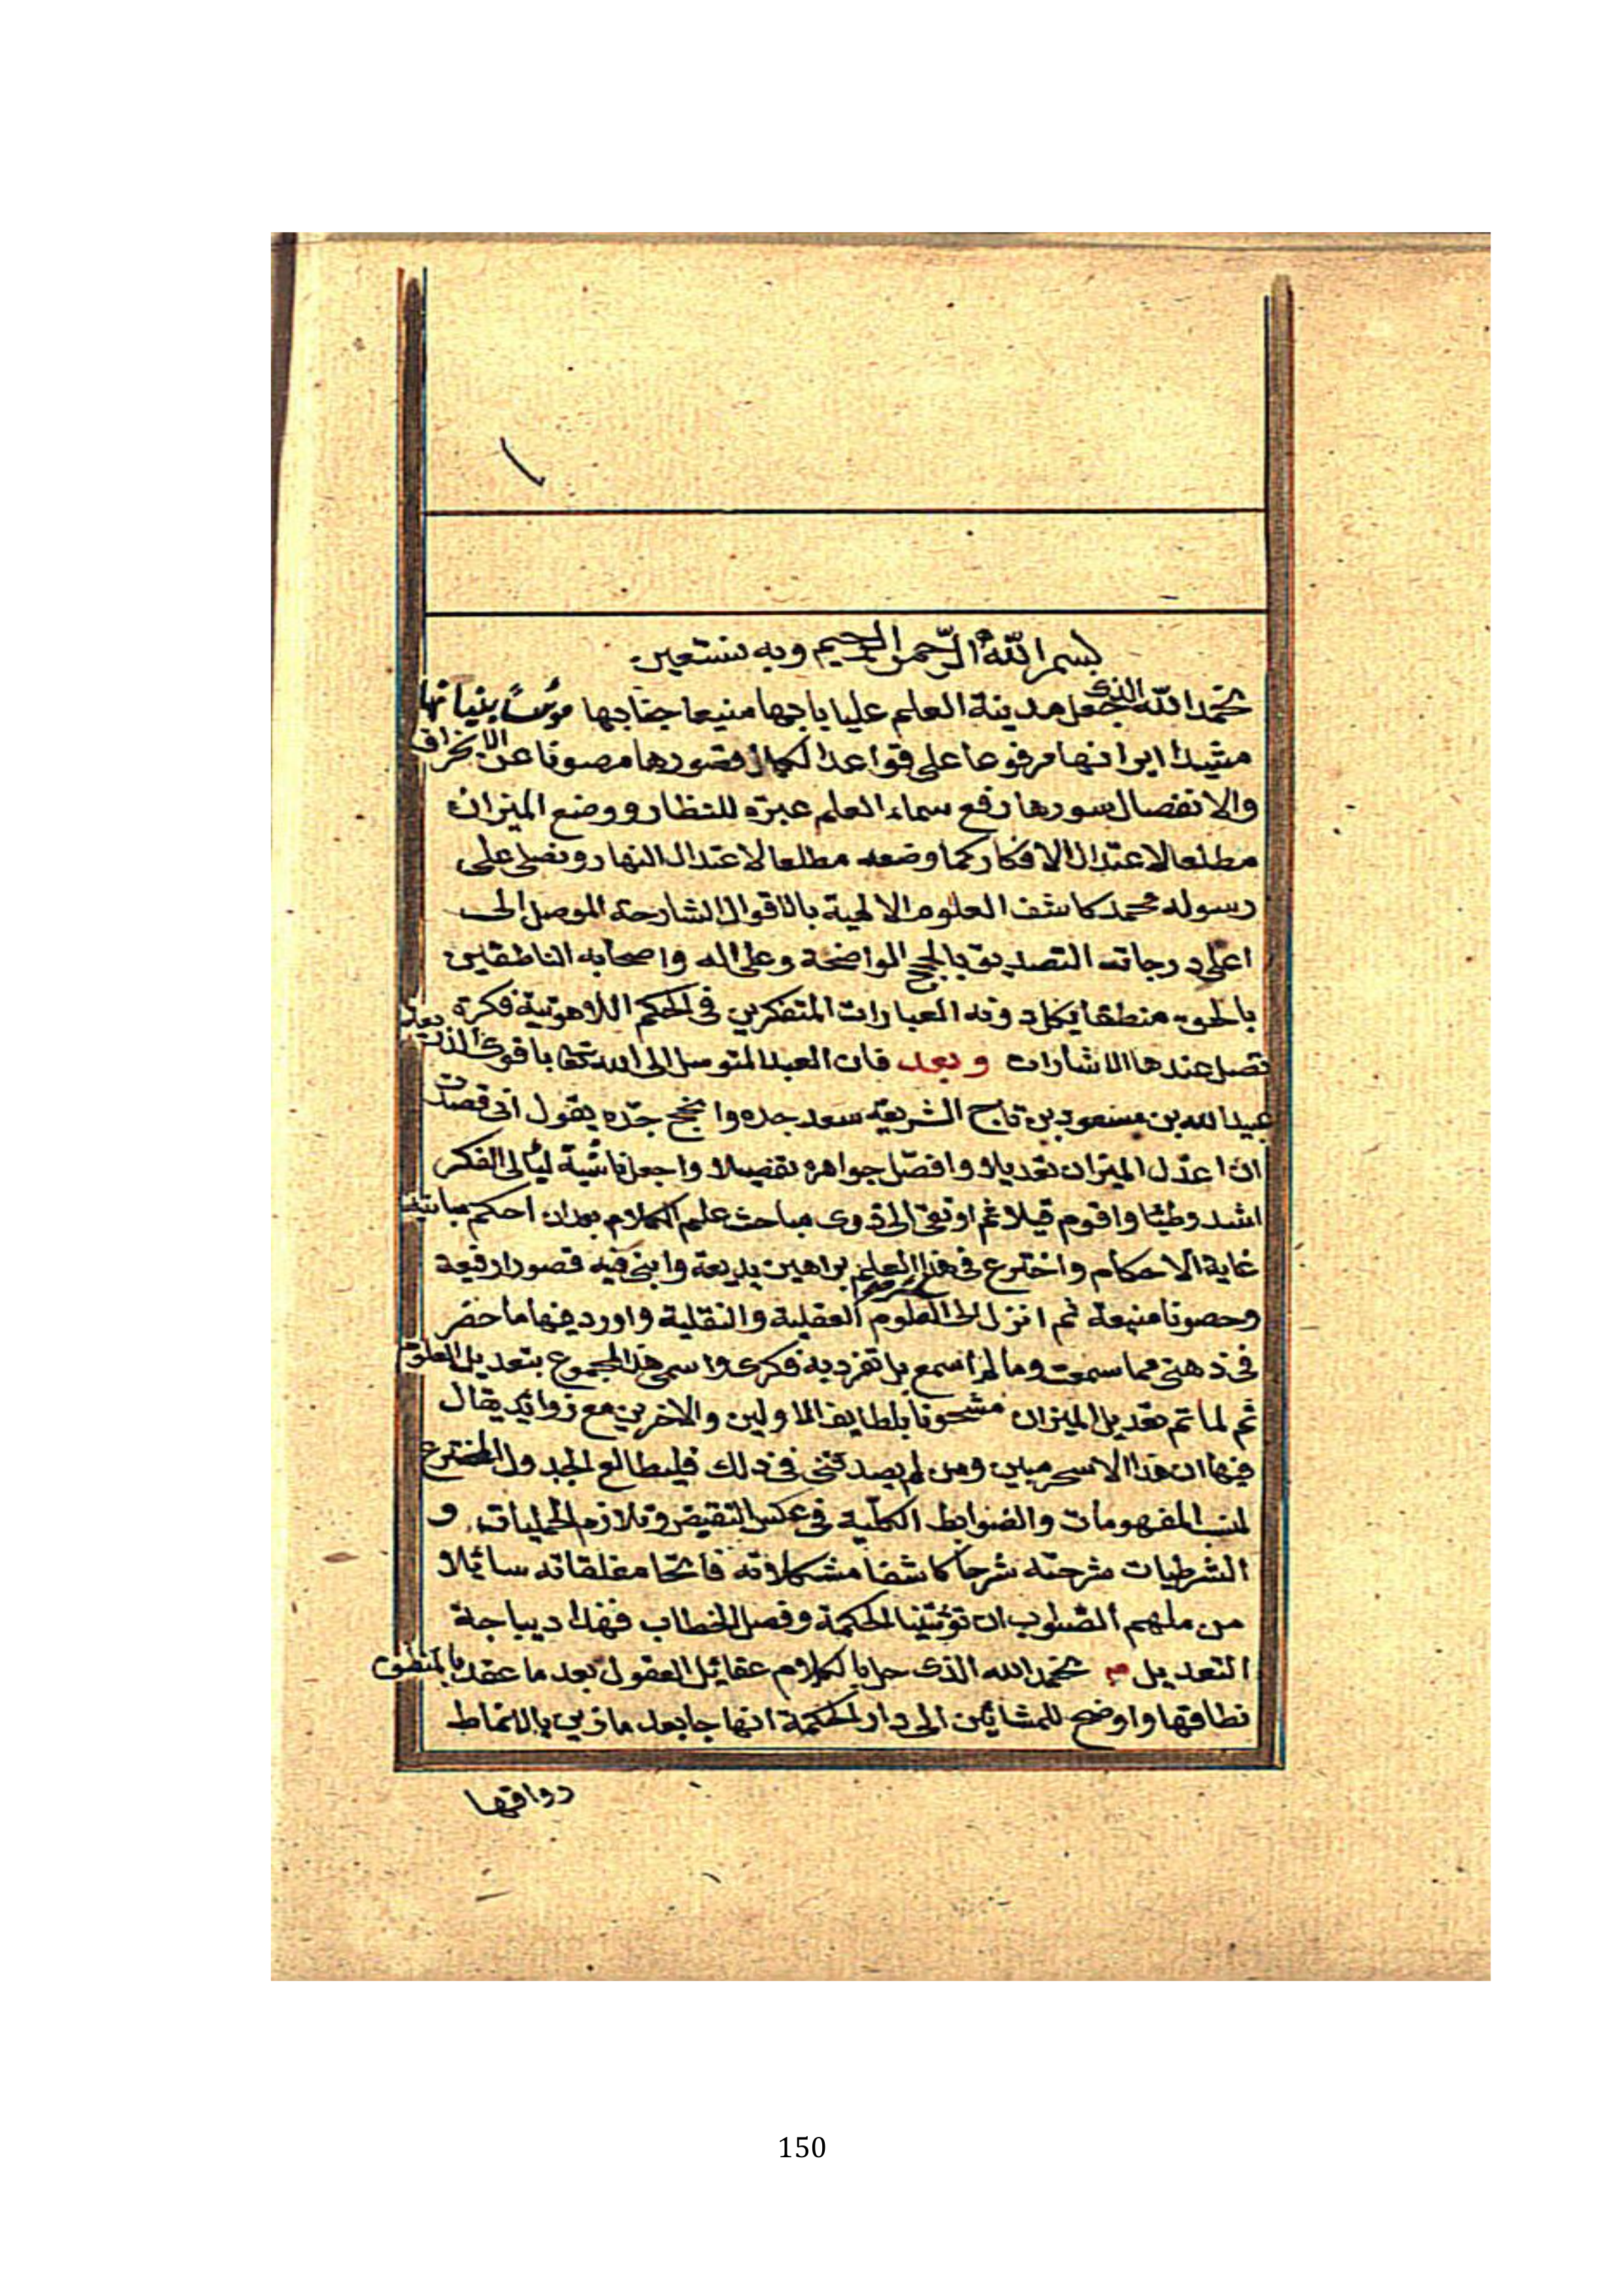 بسم الله الرحمن الرحيم وبه نستعين
نحمد الله الذى جعل مدينة العلم عليا بابها منيعا جنابها مؤسسا بنيانها
مشيدا اركانها مرفوعا على قواعد الكمال قصورها مصونا عن الانخراق
والانفصال سورها رفع سماء العلم عبرة للنظار ووضع الميزان
مطلعا لاعتدال الافكار كما وضعه مطلعا لاعتدال النهار ونصلى على
رسوله محمد كاشف العلوم الالهية بالاقوال الشارحة الموصل الى
اعلى درجات التصديق بالحجج الواضحة وعلى اله واصحابه الناطقين
بالحق منطقا يكل دونه العبارات المتفكرين فى الحكم اللاهوتية فكرة
تضل عندها الاشارات وبعد فان العبد المتوسل الى الله تعالى باقوى الذريعة
عبيد الله بن مسعود بن تاج الشريعة سعد جده وانجح جده يقول انى قصدت
ان اعدل الميزان تعديلا وافصل جواهره تفصيلا واجعل ناشئة ليالى الفكر
اشد وطئا واقوم قيلا ثم ارتقى الى ذروى مباحث علم الكلام بعد ان احكم مبانيه
غاية الاحكام واخترع فى هذا العلم براهين بديعة وابنى فيه قصورا رفيعة
وحصونا منيعة ثم انزل الى العلوم العقلية والنقلية واورد فيها ما حضر
فى ذهنى مما سمعت وما لم اسمع بل تفرد به فكرى واسمى هذا المجموع بتعديل العلوم
ثم لما تم تعديل الميزان مشحونا بلطايف الاولين والاخرين مع زوائد يقال
فيها ان هذا الا سحر مبين ومن لم يصدقنى فى ذلك فليطالع الجدول المخترع
لنسب المفهومات والضوابط الكلية فى عكس النقيض وتلازم الحمليات و
الشرطيات شرحته شرحا كاشفا مشكلاته فاتحا مغلقاته سائلا
من ملهم الصواب ان تؤتينا الحكمة وفصل الخطاب فهذا ديباجة
التعديل م نحمد الله الذى حل بالكلام عقائل العقول بعد ما عقد بالمنطق
نطاقها واوضح للمشائين الى دار الحكمة انهاجا بعد ما زين بالانماط
رواقها
150